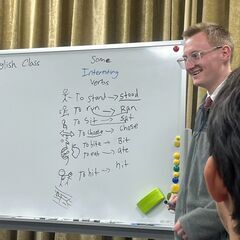 English Class
Some
Interesting
Verbs
To stand → stood
To run → Ran
To Sit → sat
To choose → chose
To bite → Bit
To eat → ate
To hit → hit